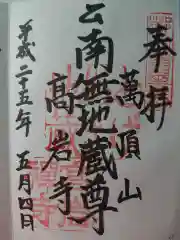 奉拝
萬頂山
南無地蔵尊
高岩寺
平成二十五年 五月四日